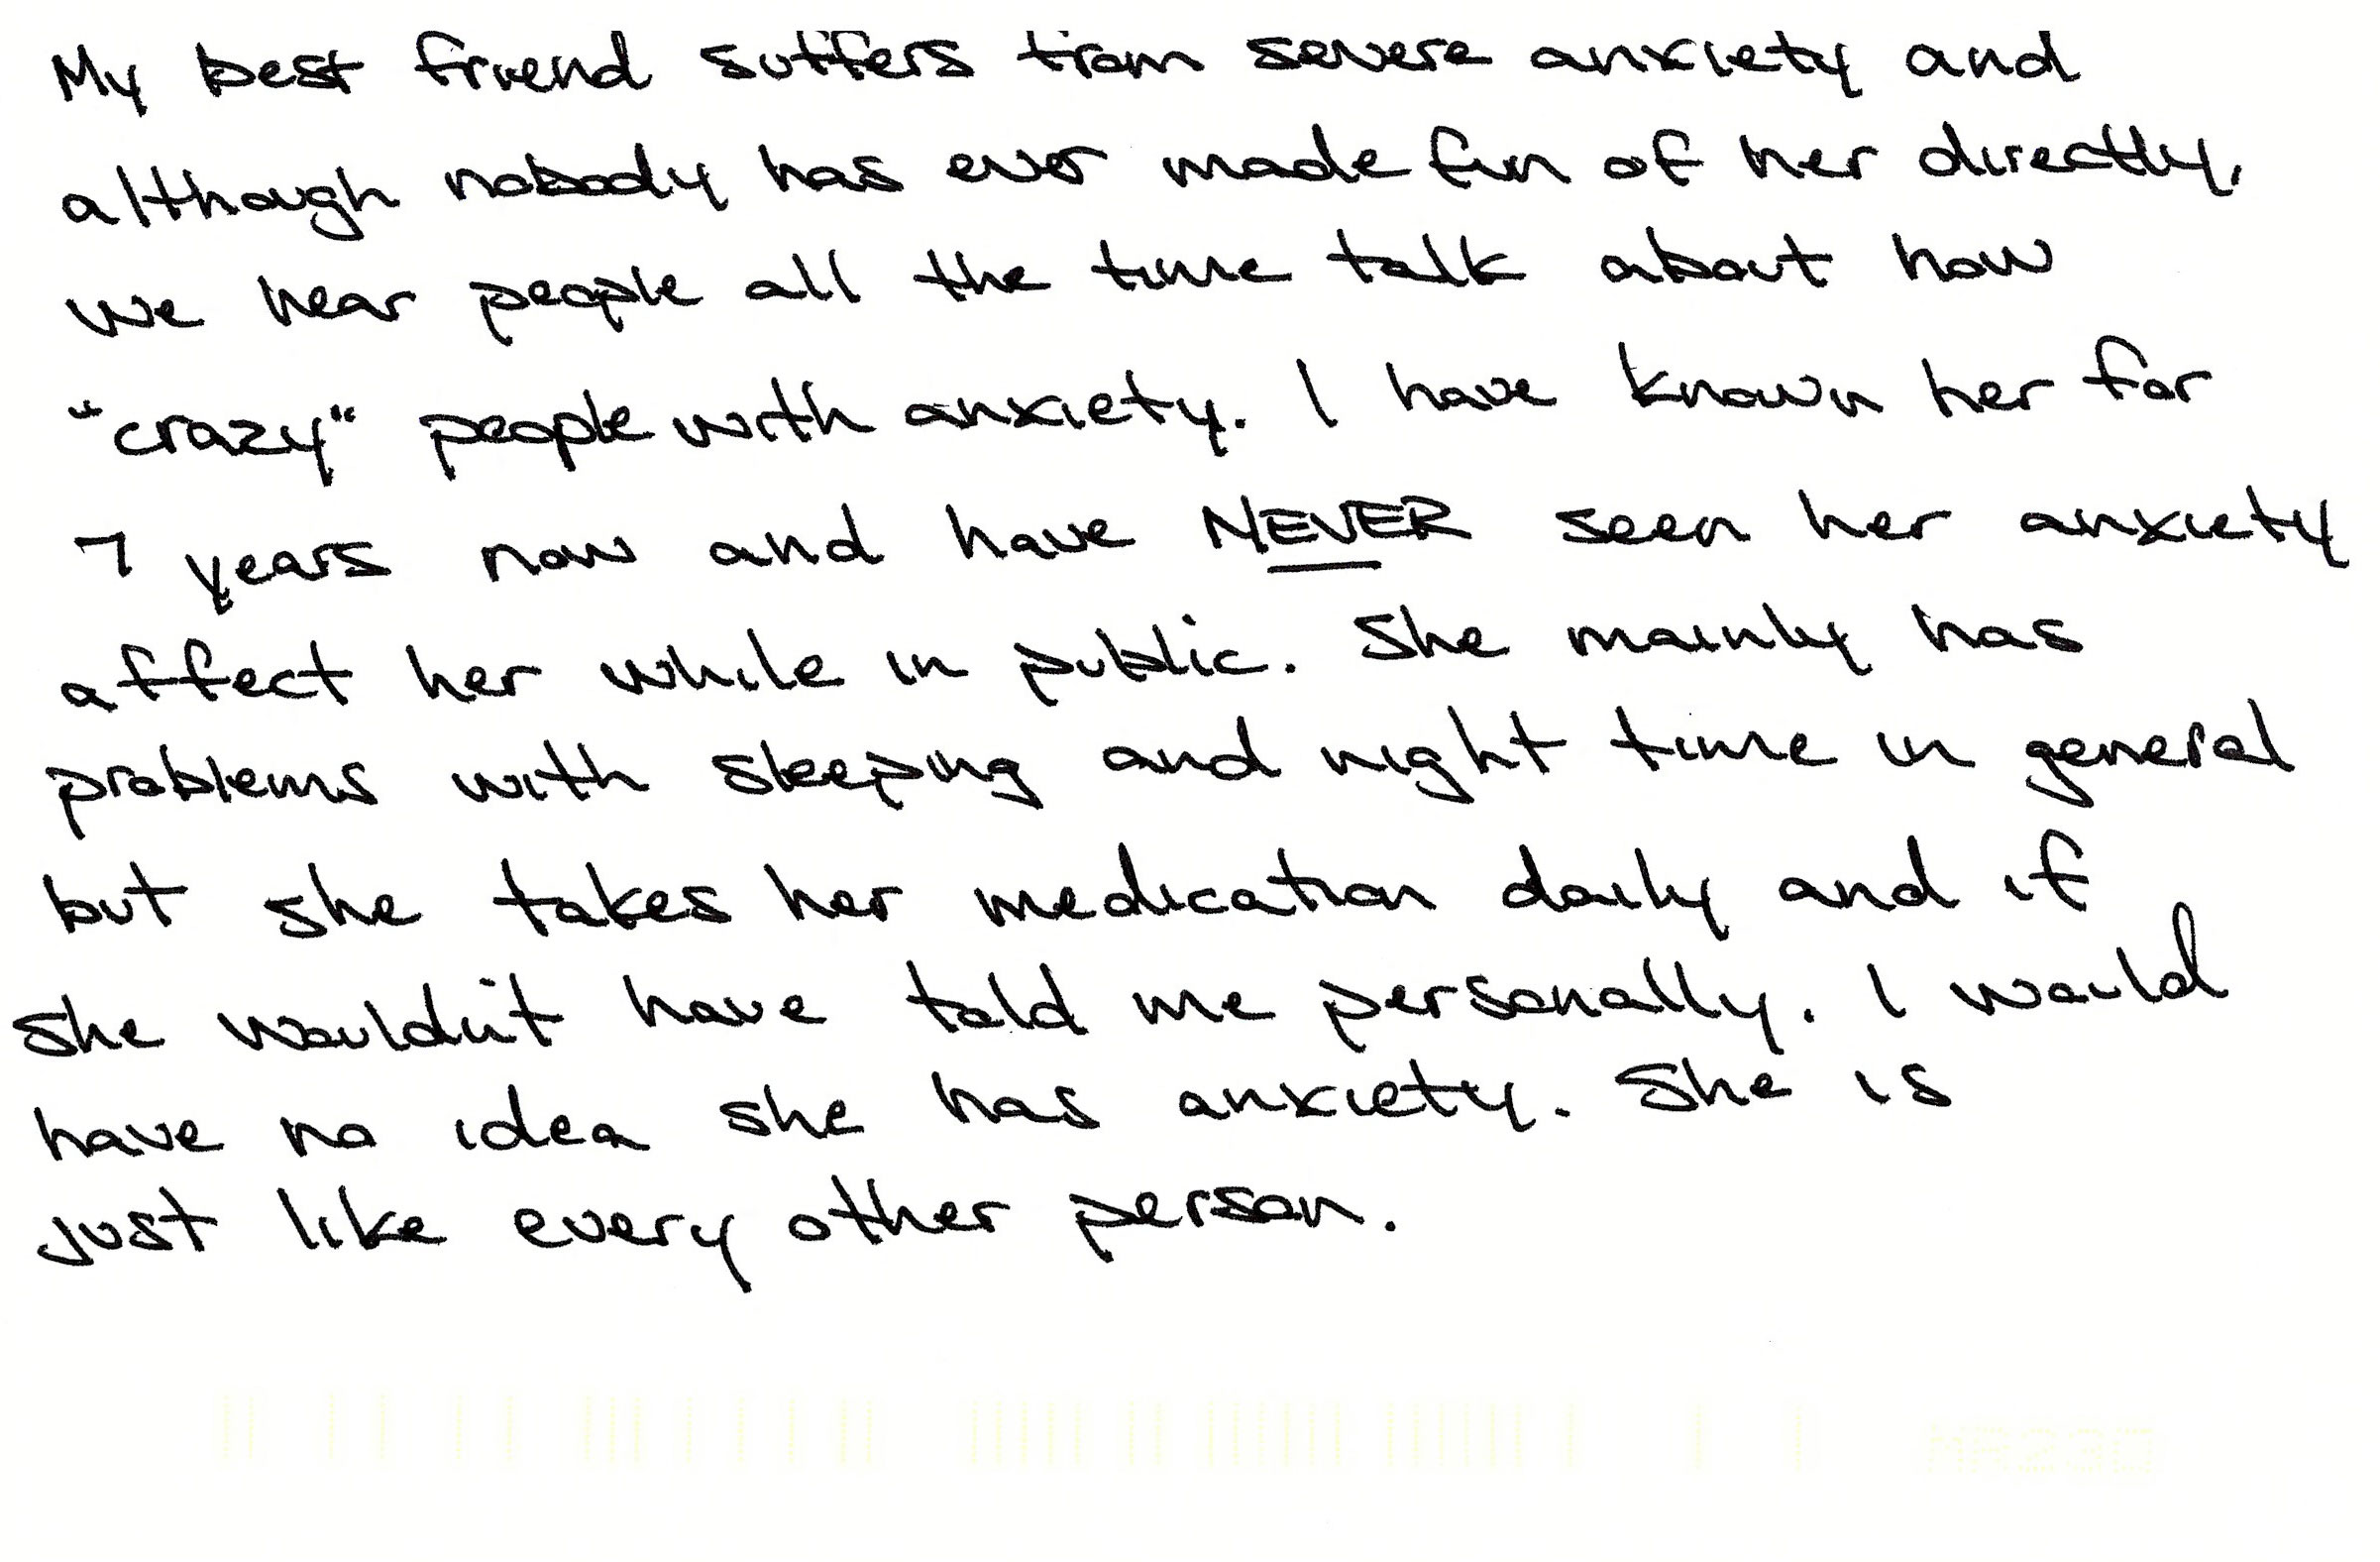 My best friend suffers from severe anxiety and
although nobody has ever made fun of her directly,
we hear people all the time talk about how
"crazy" people with anxiety. I have known her for
7 years now and have NEVER seen her anxiety
affect her while in public. She mainly has
problems with sleeping and night time in general
but she takes her medication daily and if
she wouldn't have told me personally. I would
have no idea she has anxiety. She is
just like every other person.